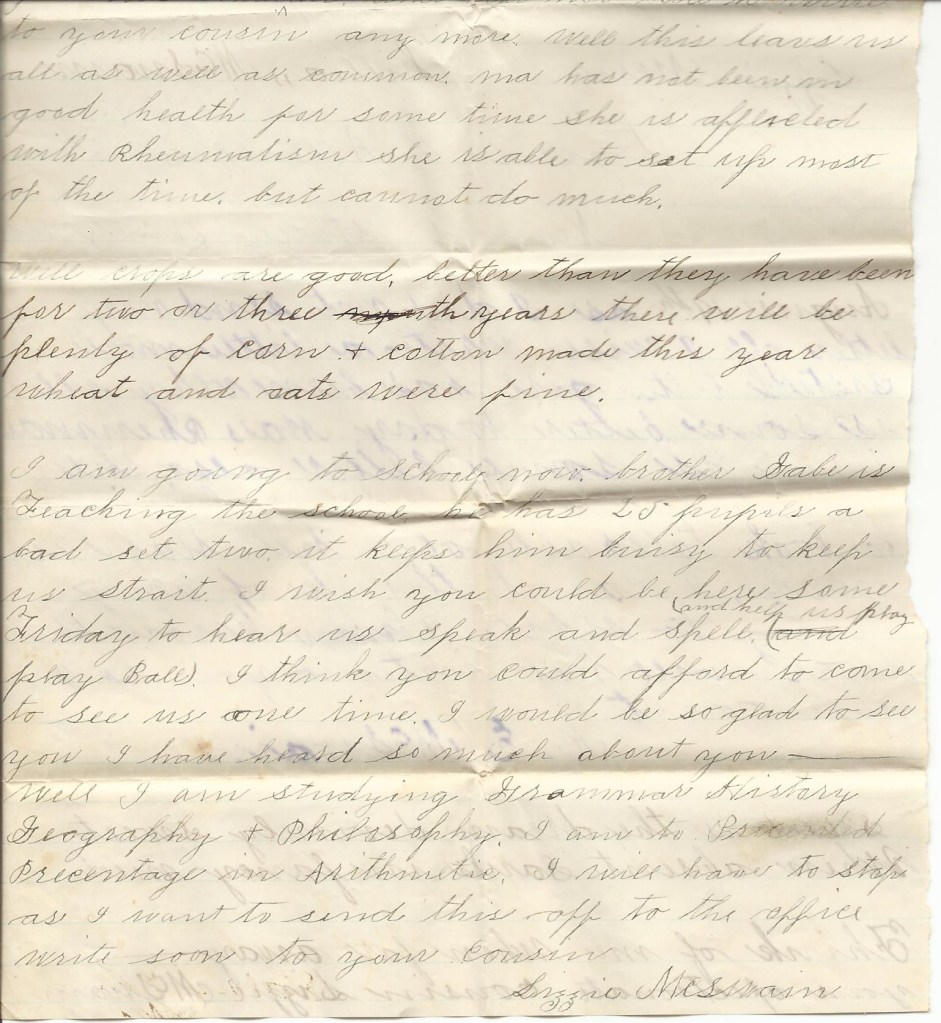 to your cousin any more. Well this leaves us
all as well as common. ma has not been in
good health for some time she is afflicted
with Rheumatism she is able to set up most
of the time. but cannot do much.
Well crops are good, better than they have been
for two or three month years there will be
plenty of corn & cotton made this year
wheat and oats were fine.
I am going to school now. brother Gabe is
Teaching the school he has 25 pupils a
bad set two it keeps him buisy to keep
us strait. I wish you could be here some
and help us play
Friday to hear us speak and spell. (and
play Ball). I think you could afford to come
to see us one time. I would be so glad to see
you I have heard so much about you —
Well I am studying Grammar History
Geography & Philosophy. I am to
Precentage in Arithmetic. I will have to stop
as I want to send this off to the office
write soon to your Cousin
Lizzie McSwain